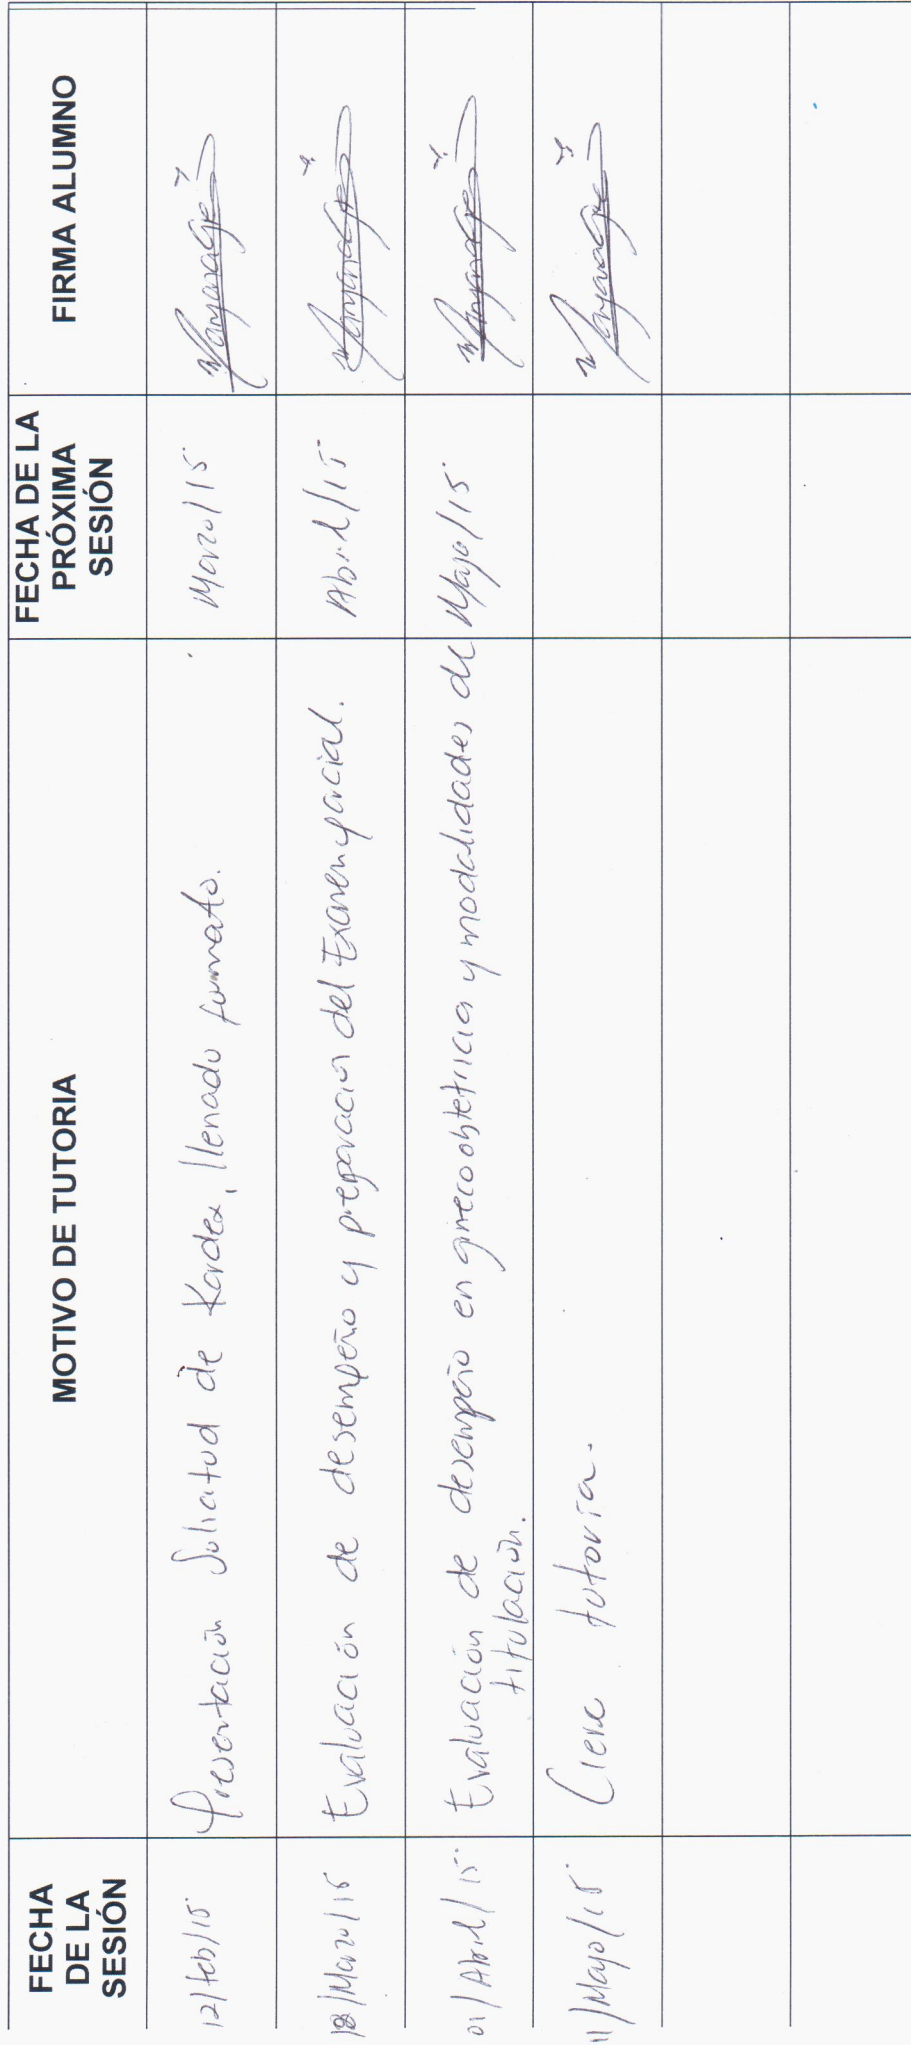 FECHA DE LA SESIÓN
MOTIVO DE TUTORIA
FECHA DE LA PRÓXIMA SESIÓN
FIRMA ALUMNO
12/feb/15
Presentación Solicitud de Kardex, llenado formato.
Marzo/15
18/Marzo/15
Evaluación de desempeño y preparación del Examen parcial.
Abril/15
01/Abril/15
Evaluación de desempeño en ginecoobstetricia y modalidades de
titulación.
Mayo/15
11/Mayo/15
Cierre tutoría.